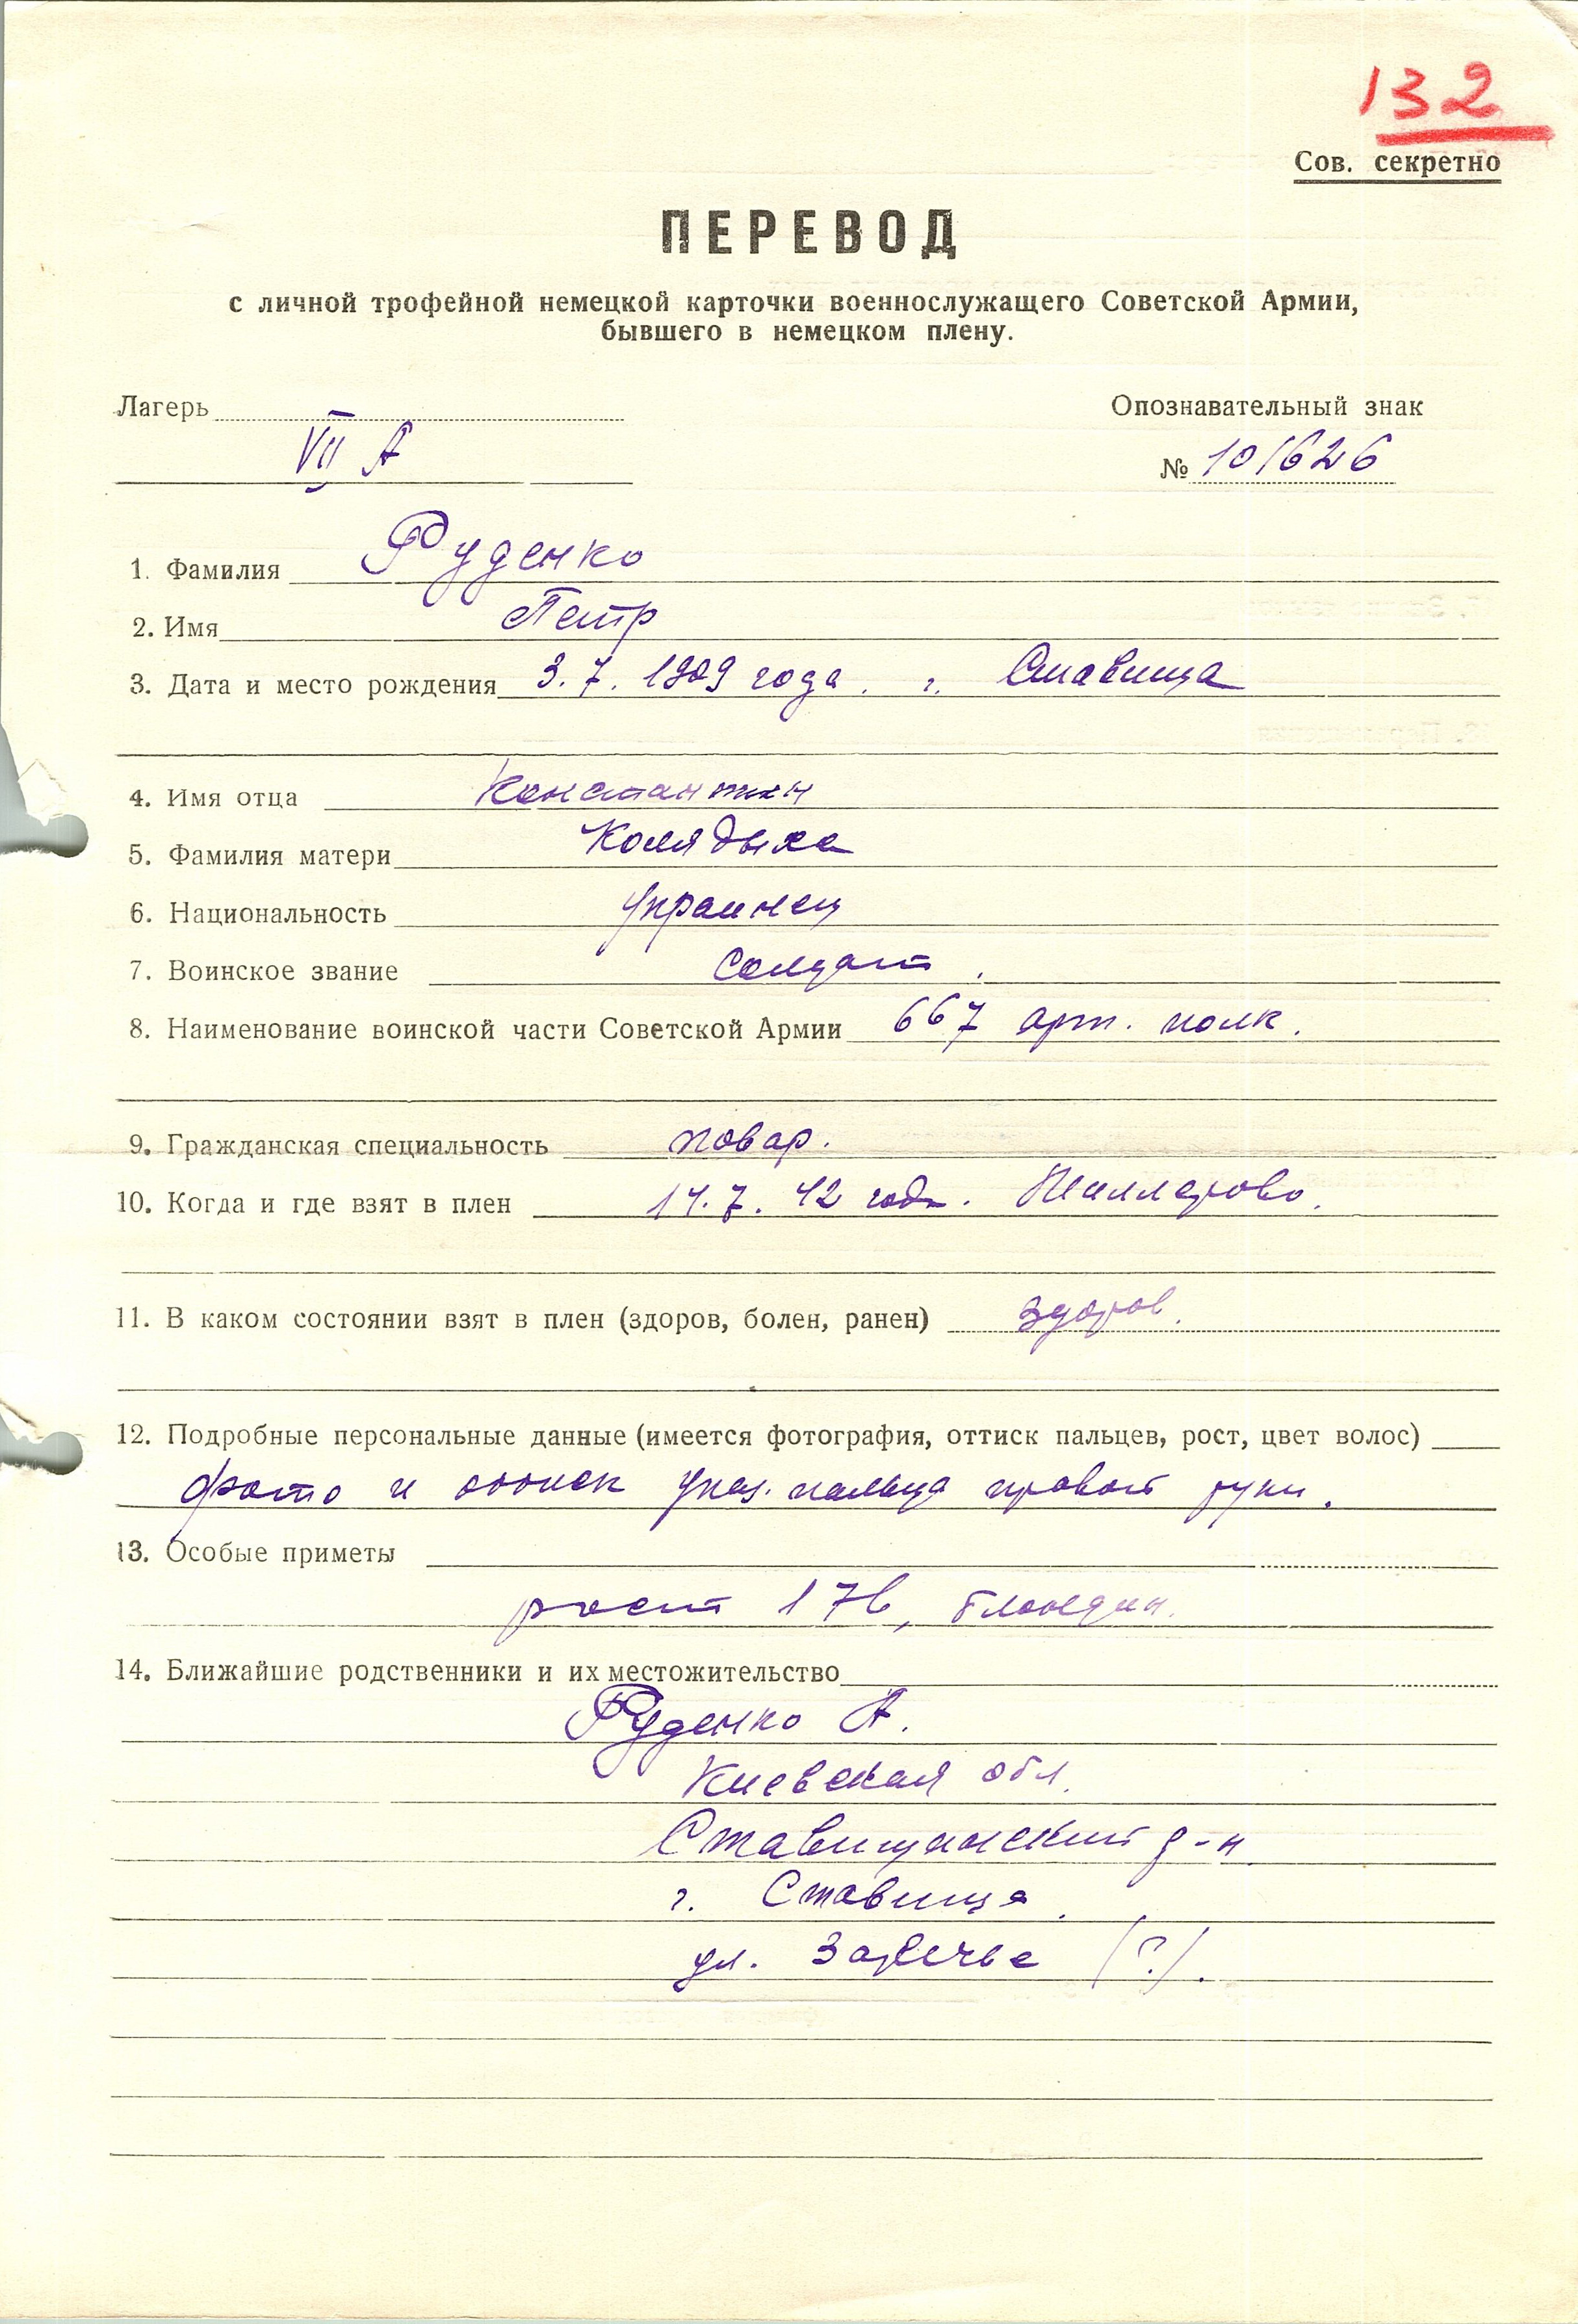 132
Сов. секретно
ПЕРЕВОД
с личной трофейной немецкой карточки военнослужащего Советской Армии,
бывшего в немецком плену.
Лагерь
Опознавательный знак
VII А
№ 101626
1. Фамилия Руденко
2. Имя Петр
3. Дата и место рождения 3.7.1909 года. г. Ставища
4. Имя отца Константин
5. Фамилия матери
6. Национальность Украинец
7. Воинское звание Солдат.
8. Наименование воинской части Советской Армии 667 арт. полк.
9. Гражданская специальность повар.
10. Когда и где взят в плен 14.7.42 года. Миллерово.
11. В каком состоянии взят в плен (здоров, болен, ранен) здоров.
12. Подробные персональные данные (имеется фотография, оттиск пальцев, рост, цвет волос)
фото и оттиск указ. пальца правой руки.
13. Особые приметы
рост 176, блондин.
14. Ближайшие родственники и их местожительство
Руденко А.
Киевская обл.
Ставищанский р-н
г. Ставища.
ул. Заречье (?).